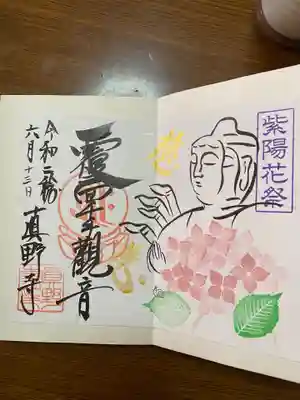 紫陽花祭
覆面觀音
令和
六月十三日
真野寺